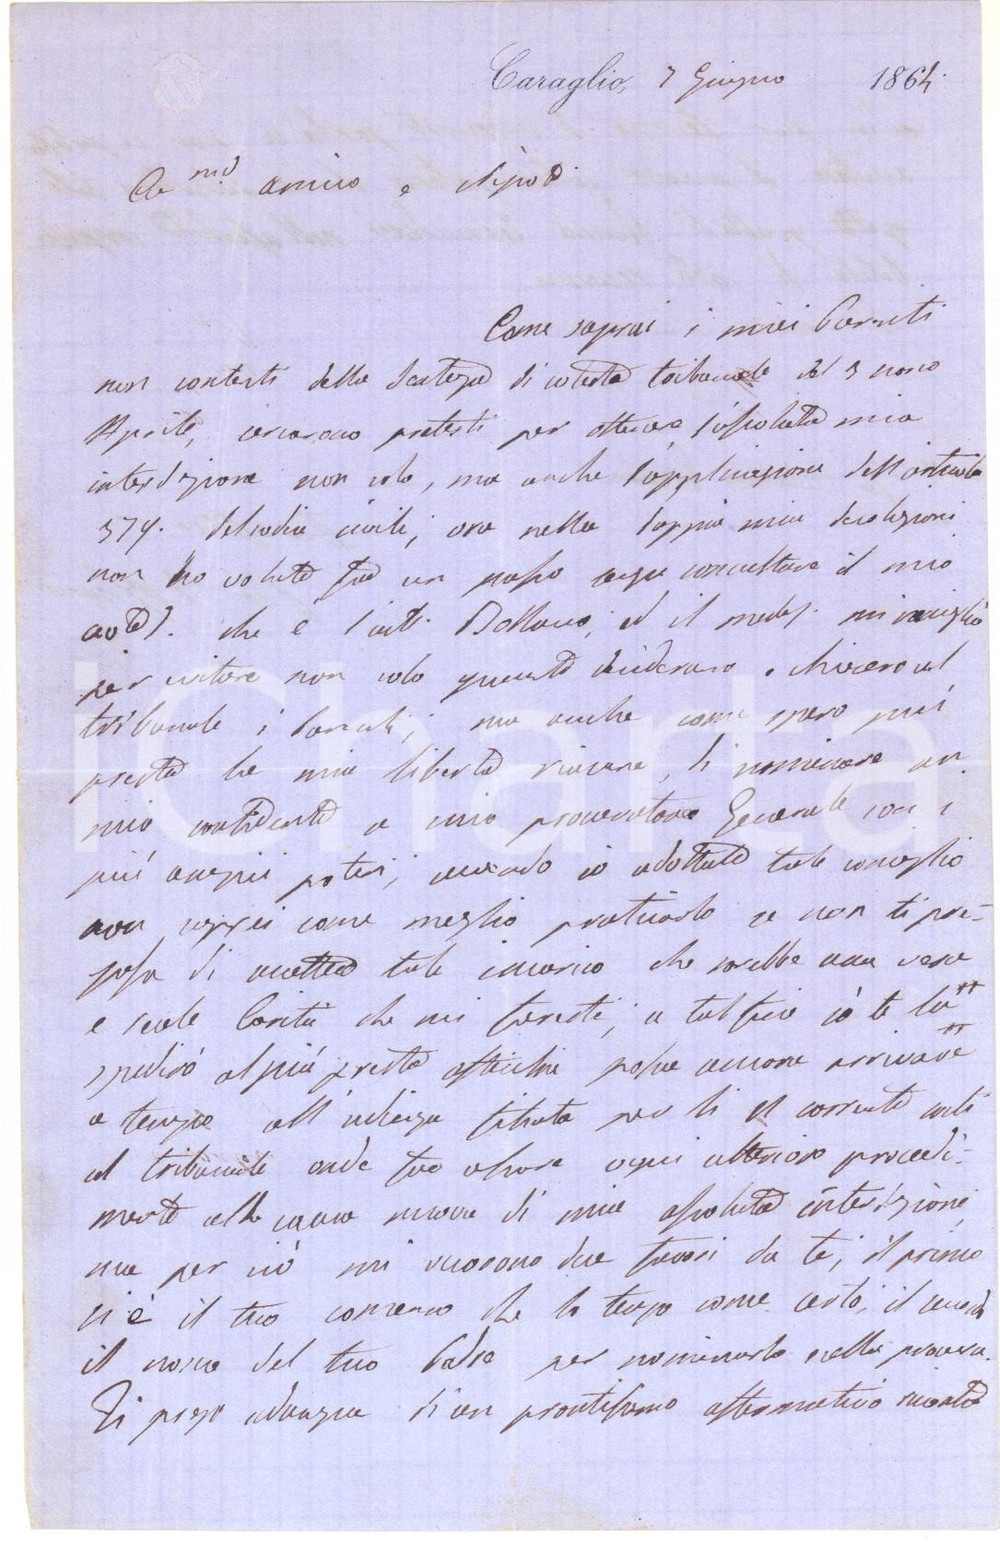 Caraglio, 7 Giugno 1864.
amico e Nipote
Come saprai i miei Parenti
non contenti della Sentenza di cotesto tribunale del 3 scorso
Aprile, cercarono pretesti per ottenere l'assoluta mia
interdizione non solo, ma anche l'applicazione dell'articolo
379. del codice civile; ora nella doppia mia
non ho voluto far un passo senza consultare il mio
avv. che è l'avv. ed il medes. mi consigliò
per evitare non solo quanto desiderano e chiesero al
tribunale i Parenti; ma anche come spero più
presto la mia libertà di nominare un
mio confidente a mio procuratore Generale con i
più ampii poteri; avendo io adottato tale consiglio
non saprei come meglio praticarlo se non ti pre-
gassi di accettare tale incarico che sarebbe una vera
e reale Carità che mi faresti; a tal fine io te la
spedirò al più presto affinché possa ancora arrivare
a tempo all'udienza fissata per li corrente avanti
al tribunale onde far cessare ogni ulteriore procedi-
mento alla causa nuova di mia assoluta interdizione,
ma per ciò mi occorrono due favori da te; il primo
si è il tuo consenso che lo tengo come certo, il secondo
il nome del tuo Padre per nominarlo nella procura.
Ti prego adunque di un prontissimo affermativo riscontro
iCharta